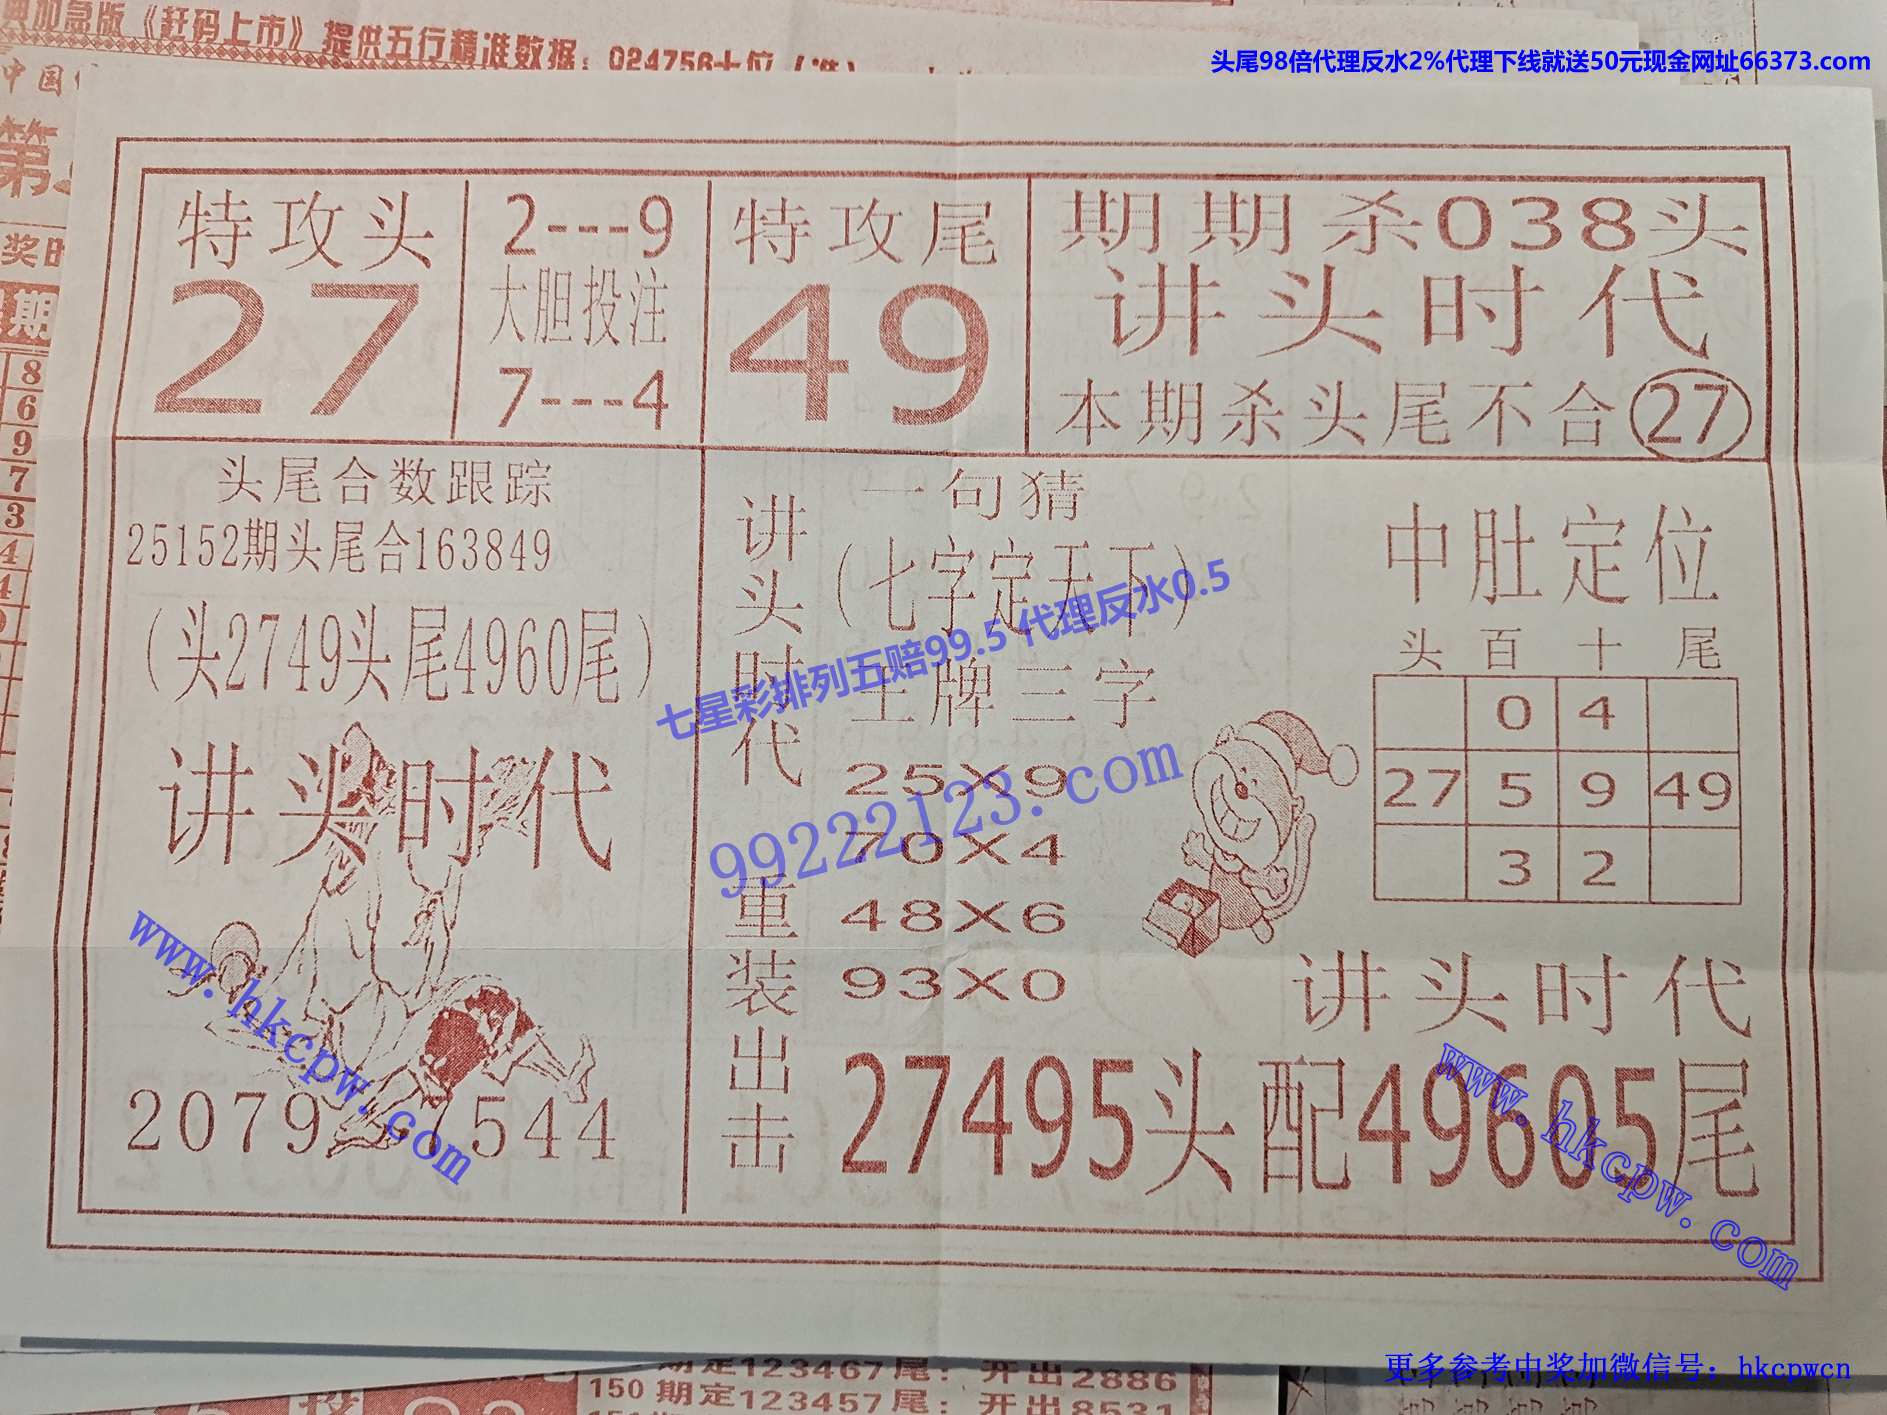 加急版《赶码上市》提供五行精准数据：024756十位（准）
头尾98倍代理反水2%代理下线就送50元现金网址66373.com
中国
第
奖时
期
8
6
9
7
3
4
4
特攻头
27
2---9
大胆投注
7---4
特攻尾
49
期期杀038头
讲头时代
本期杀头尾不合27
头尾合数跟踪
25152期头尾合163849
（头2749头尾4960尾）
讲头时代
2079
544
讲头时代
重装出击
一句猜
（七字定天下）
王牌三字
25X9
70X4
48X6
93X0
中肚定位
头 百 十 尾
0 4
27 5 9 49
3 2
讲头时代
27495头配49605尾
七星彩排列五赔99.5 代理反水0.5
99222123.com
www.hkcpw.com
www.hkcpw.com
期定123467尾：开出2886
150期定123457尾：开出8531
更多参考中奖加微信号：hkcpwcn